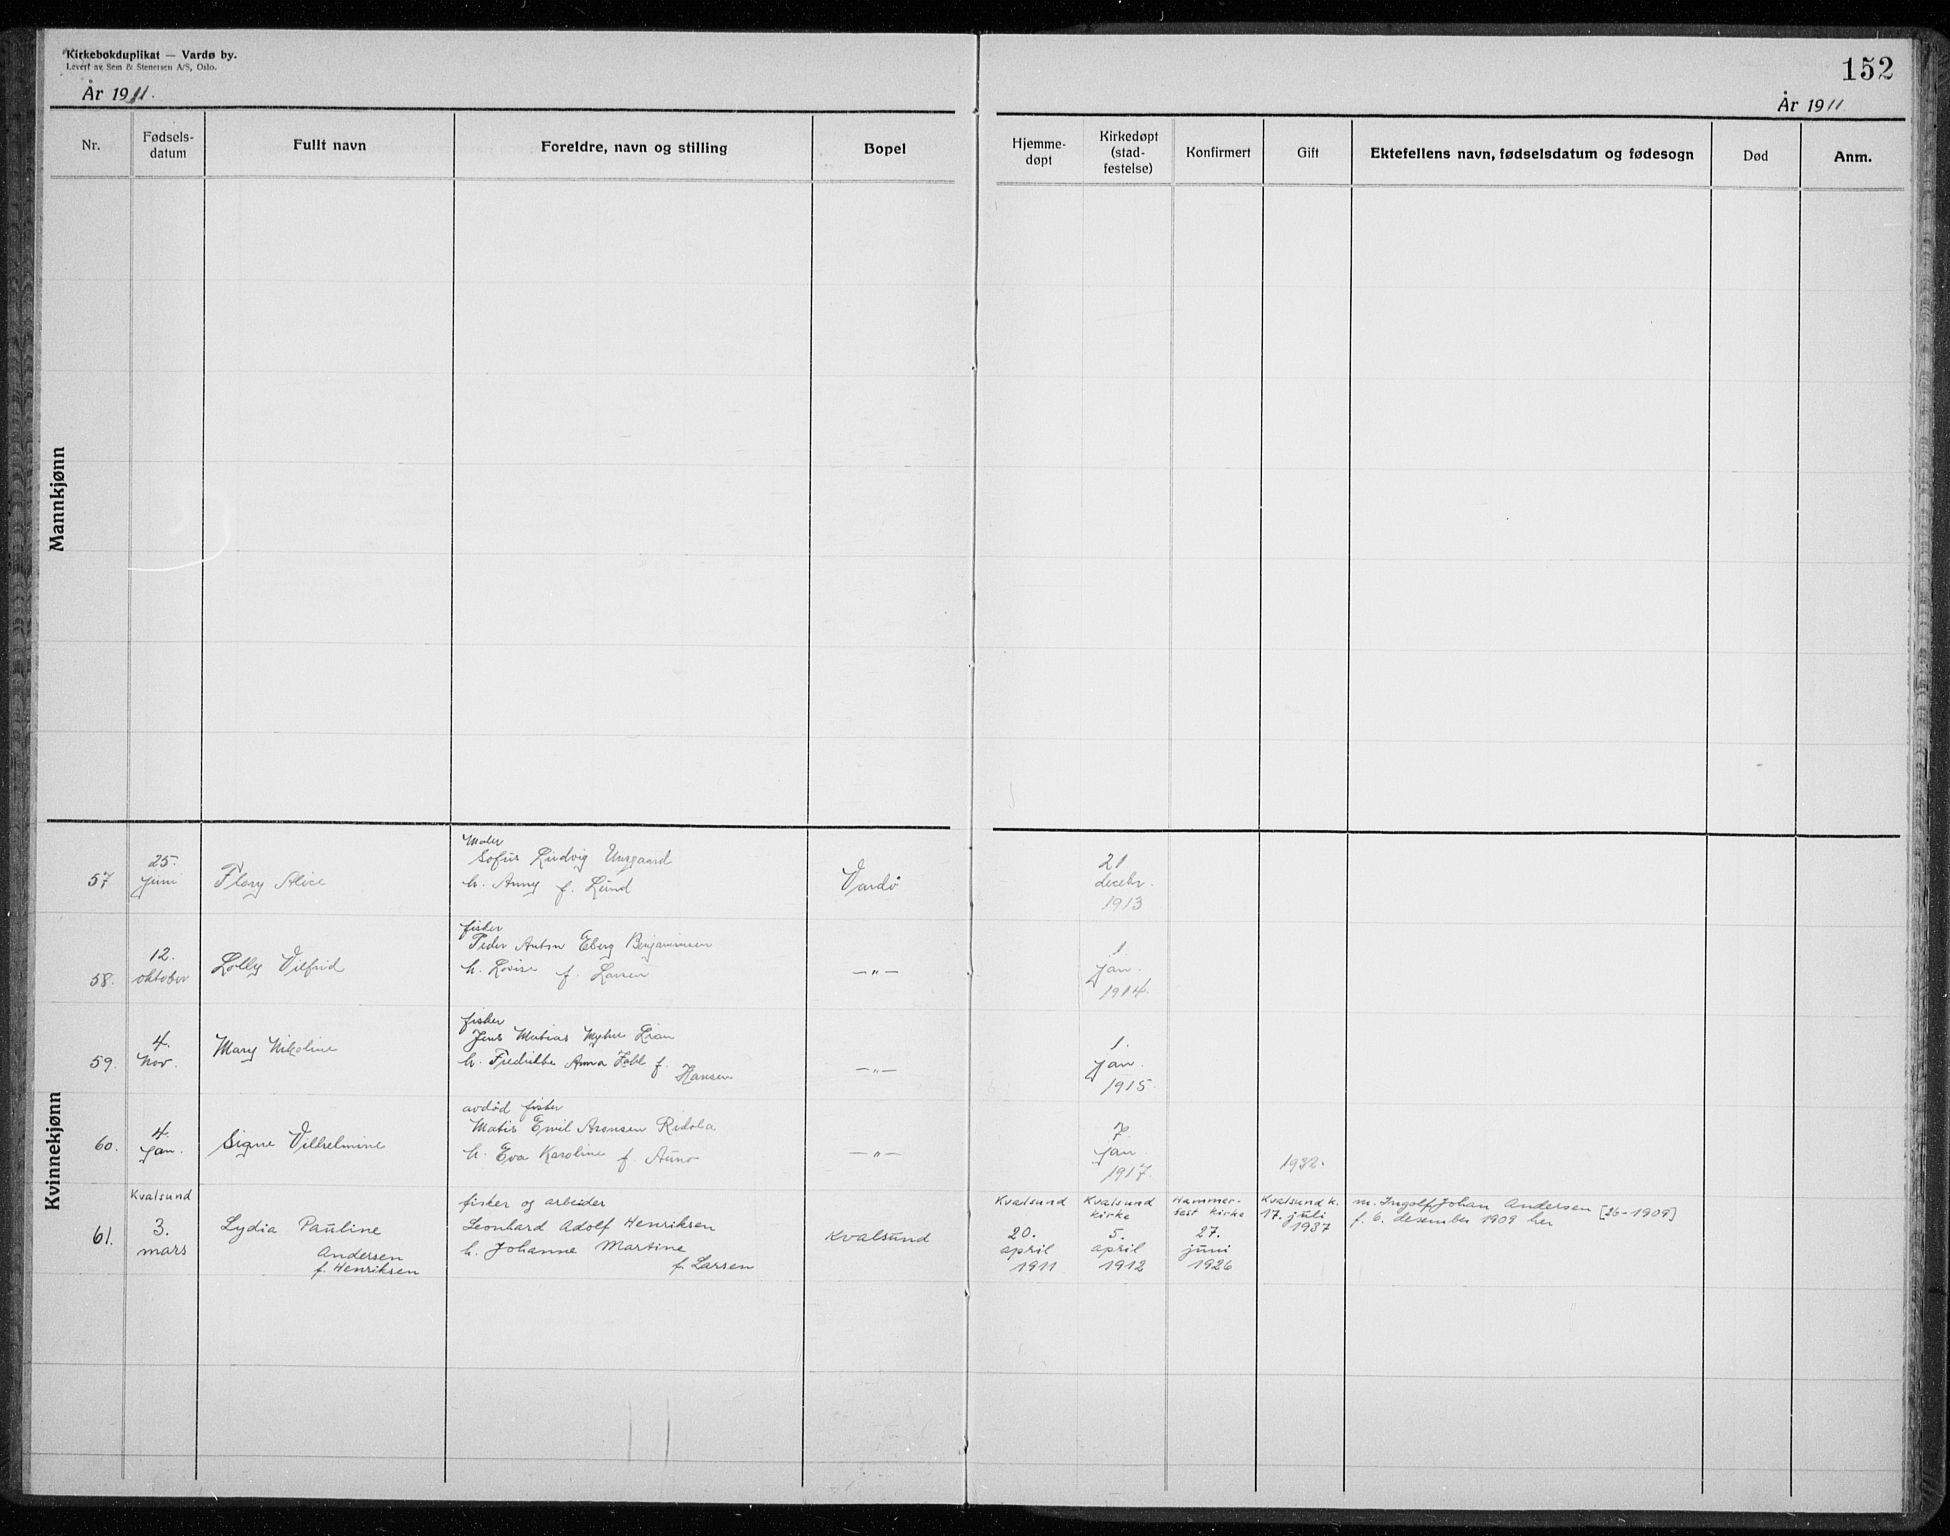 Kirkebokduplikat — Vardø by.
Levert av Sem & Stenersen A/S, Oslo.
År 1911.
152
År 1911.
Nr.
Fødsels-
datum
Fullt navn
Foreldre, navn og stilling
Bopel
Hjemme-
døpt
Kirkedøpt
(stad-
festelse)
Konfirmert
Gift
Ektefellens navn, fødselsdatum og fødesogn
Død
Anm.
Mannkjønn
Kvinnekjønn
57
25.
juni
Flory Alice
Maler
Sofus Ludvig Ursgaard
h. Anny f. Lund
Vardø
21
decebr.
1913
58.
12.
oktober
Lolly Vilfrid
fisker
Peder Anton Eberg Benjaminsen
h. Lovise f. Larsen
—"—
1.
jan.
1914.
59.
4.
Nov.
Mary Nikoline
fisker
Jens Matias Lian
h. Fredrikke Anna f.
Hansen
—"—
1.
jan.
1915.
60.
4.
jan.
Signe Vilhelmine
avdød fisker
Matis Emil Aronsen Ridola
h. Eva Karoline f. Auno
—"—
7.
jan.
1917.
1932.
61.
Kvalsund
3.
mars
Lydia Pauline
Andersen
f. Henriksen
fisker og arbeider
Leonhard Adolf Henriksen
h. Johanne Martine
f. Larsen
Kvalsund
Kvalsund
20.
april
1911
Kvalsund
kirke
5.
april
1912
Hammer-
fest kirke
27.
juni
1926
Kvalsund k.
17. juli
1937
m. Ingolf Johan Andersen [26-1909]
f. 6. desember 1909 her